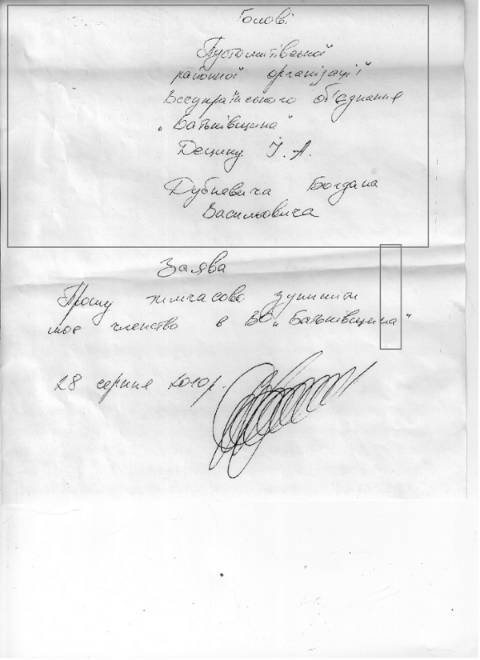 Голові
Пустомитівської
районної організації
Всеукраїнського об'єднання
„Батьківщина"
Децику І. А.
Дубневича Богдана
Васильовича
Заява
Прошу тимчасово зупинити
моє членство в ВО „Батьківщина"
28 серпня 2010р.